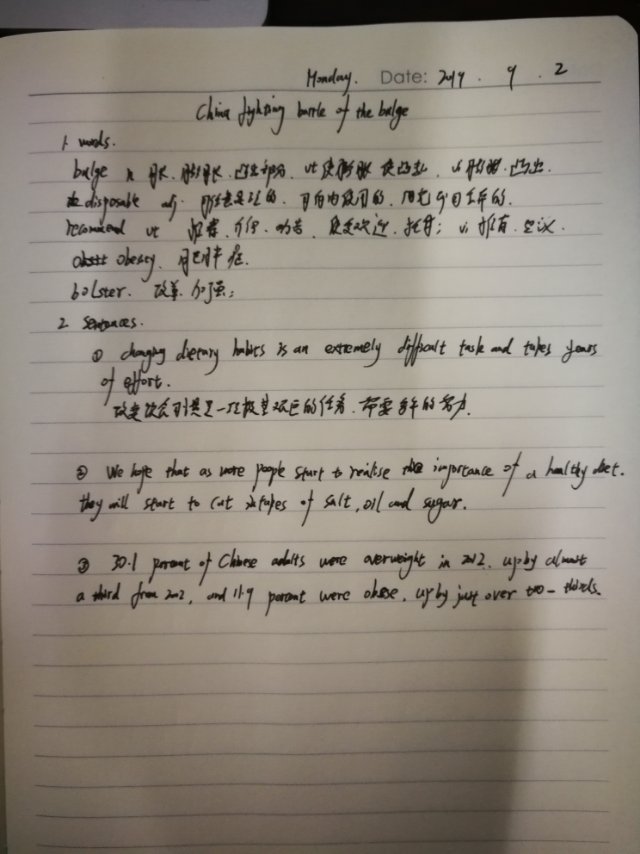 Monday. Date: 2019 . 9 . 2
China fighting battle of the bulge
1 words.
bulge n 肿胀, 膨胀, 凸出部分, vt 使膨胀 使凸出, vi 膨胀. 凸出.
disposable adj. 可任意处理的. 可自由使用的. 用完
recommend vt 推荐, 介绍. 劝告, 使受欢迎. 托付; vi 推荐. 建议.
obesity. 肥胖症.
bolster. 改善. 加强;
2 sentences.
① changing dietary habits is an extremely difficult task and takes years
of effort.
改变饮食习惯是一项极其艰巨的任务, 需要多年的努力.
② We hope that as more people start to realise the importance of a healthy diet.
they will start to cut intakes of salt, oil and sugar.
③ 30.1 percent of Chinese adults were overweight in 2012. up by almost
a third from 2002, and 11.9 percent were obese, up by just over two-thirds.